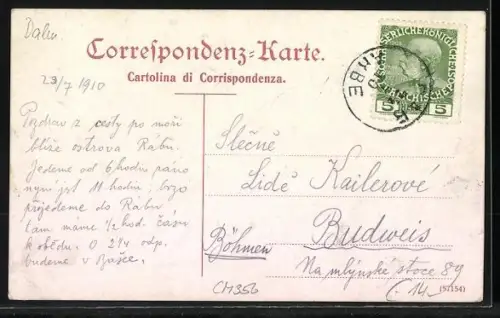 Dalm
Correspondenz-Karte.
Cartolina di Corrispondenza.
23/7 1910
Pozdrav z cesty po moři
blíže ostrova Rabu.
Jedeme od 6 hod ráno
nyní jest 11 hodin, brzo
přijedeme do Rabu
tam máme ½ hod. času
k obědu. O 2¼ odp.
budeme v Bašce.
5 5
Slečně
Lidě Kailerové
Budweis
Böhmen
Na mlýnské stoce 89
14
CH356
(57154)